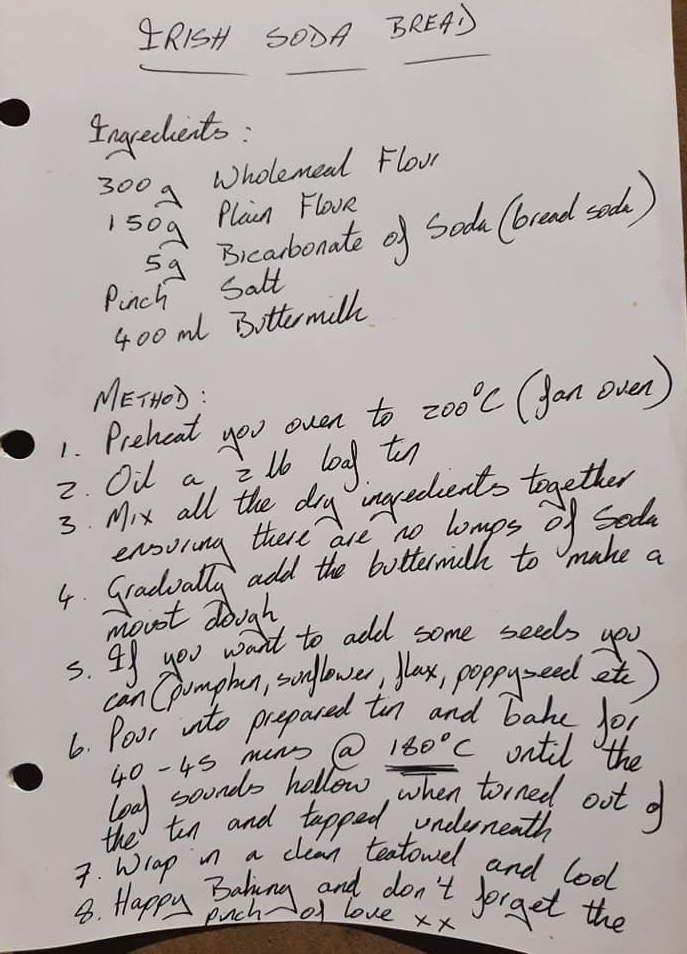 IRISH SODA BREAD
Ingredients:
300g Wholemeal Flour
150g Plain Flour
5g Bicarbonate of Soda (bread soda)
Pinch Salt
400 ml Buttermilk
METHOD:
1. Preheat you oven to 200°C (fan oven)
2. Oil a 2 lb loaf tin
3. Mix all the dry ingredients together
ensuring there are no lumps of Soda
4. Gradually add the buttermilk to make a
moist dough
5. If you want to add some seeds you
can (pumpkin, sunflower, flax, poppyseed etc)
6. Pour into prepared tin and bake for
40-45 mins @ 180°C until the
loaf sounds hollow when turned out of
the tin and tapped underneath
7. Wrap in a clean teatowel and cool
8. Happy Baking and don't forget the
pinch of love xx